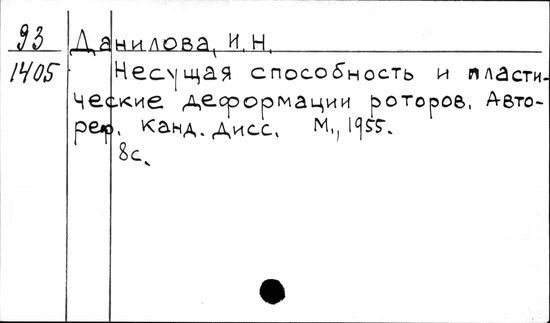 93 Данилова, И.Н.
1405 Несущая способность и пласти-
ческие деформации роторов. Авто-
реф. канд. дисс. М., 1955.
8с.